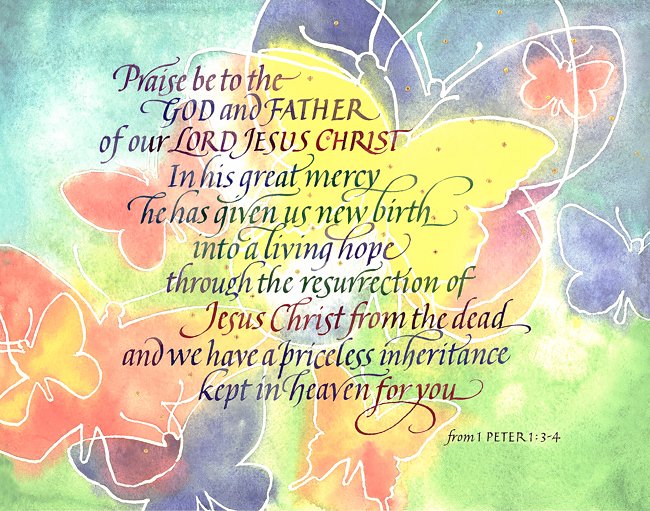 Praise be to the
GOD and FATHER
of our LORD JESUS CHRIST
In his great mercy
he has given us new birth
into a living hope
through the resurrection of
Jesus Christ from the dead
and we have a priceless inheritance
kept in heaven for you
from 1 PETER 1:3-4